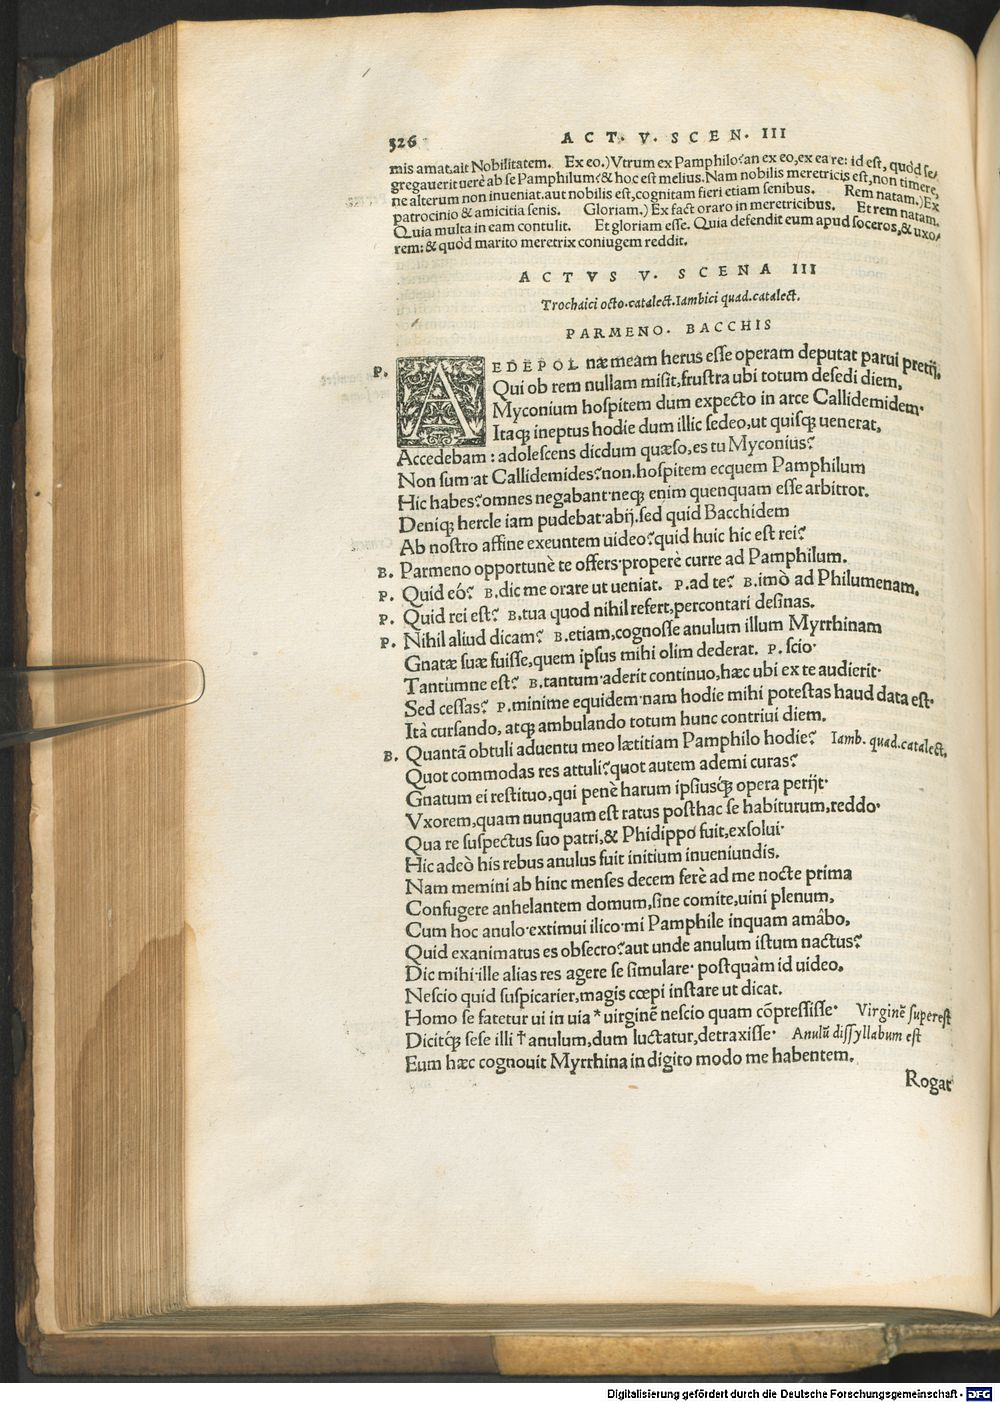 326 ACT. V. SCEN. III
mis amat.ait Nobilitatem. Ex eo.) Vtrum ex Pamphilo? an ex eo, ex ea re: id est, quòd se/
gregauerit uerè ab se Pamphilum? & hoc est melius. Nam nobilis meretricis est, non timere,
ne alterum non inueniat. aut nobilis est, cognitam fieri etiam senibus. Rem natam.) Ex
patrocinio & amicitia senis. Gloriam.) Ex fact oraro in meretricibus. Et rem natam.
Quia multa in eam contulit. Et gloriam esse. Quia defendit eum apud soceros, & uxo/
rem: & quòd marito meretrix coniugem reddit.
ACTVS V. SCENA III
Trochaici octo.catalect. Iambici quad.catalect.
PARMENO. BACCHIS
P. AEDEPOL næ meam herus esse operam deputat parui pretij,
Qui ob rem nullam misit, frustra ubi totum desedi diem,
Myconium hospitem dum expecto in arce Callidemidem·
Itaqꝫ ineptus hodie dum illic sedeo, ut quisqꝫ uenerat,
Accedebam: adolescens dicdum quæso, es tu Myconius?
Non sum·at Callidemides? non. hospitem ecquem Pamphilum
Hic habes? omnes negabant·neqꝫ enim quenquam esse arbitror.
Deniqꝫ hercle iam pudebat·abij. sed quid Bacchidem
Ab nostro affine exeuntem uideo? quid huic hic est rei?
B. Parmeno opportunè te offers·properè curre ad Pamphilum.
P. Quid eó? B. dic me orare ut ueniat. P. ad te? B. imò ad Philumenam.
P. Quid rei est? B. tua quod nihil refert, percontari desinas.
P. Nihil aliud dicam? B. etiam, cognosse anulum illum Myrrhinam
Gnatæ suæ fuisse, quem ipsus mihi olim dederat. P. scio·
Tantumne est? B. tantum·aderit continuo, hæc ubi ex te audierit·
Sed cessas? P. minime equidem·nam hodie mihi potestas haud data est·
Ità cursando, atqꝫ ambulando totum hunc contriui diem.
B. Quantā obtuli aduentu meo lætitiam Pamphilo hodie? Iamb. quad.catalect.
Quot commodas res attuli? quot autem ademi curas?
Gnatum ei restituo, qui penè harum ipsiusqꝫ́ opera perijt·
Vxorem, quam nunquam est ratus posthac se habiturum, reddo·
Qua re suspectus suo patri, & Phidippo fuit, exsolui·
Hic adeò his rebus anulus fuit initium inueniundis.
Nam memini ab hinc menses decem ferè ad me nocte prima
Confugere anhelantem domum, sine comite, uini plenum,
Cum hoc anulo·extimui ilico·mi Pamphile inquam amâbo,
Quid exanimatus es obsecro? aut unde anulum istum nactus?
Dic mihi·ille alias res agere se simulare· postquàm id uideo,
Nescio quid suspicarier, magis cœpi instare ut dicat.
Homo se fatetur ui in uia * uirginē nescio quam cōpressisse· Virginē superest
Dicitqꝫ́ sese illi † anulum, dum luctatur, detraxisse· Anulū dissyllabum est
Eum hæc cognouit Myrrhina in digito modo me habentem.
Rogat
Digitalisierung gefördert durch die Deutsche Forschungsgemeinschaft - DFG